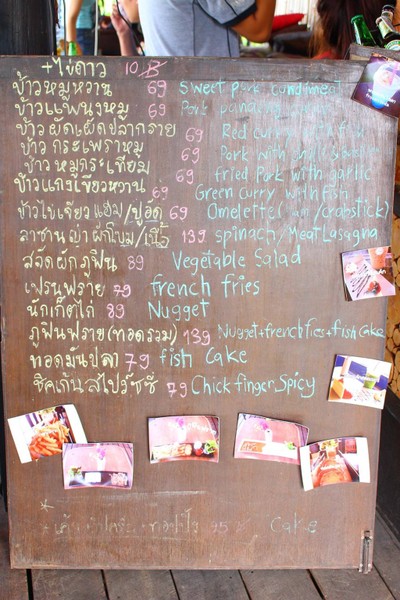 +ไข่ดาว 10 ฿
ข้าวหมูหวาน 69 Sweet pork condiment
ข้าวแพนงหมู 69 Pork panaeng
ข้าวผัดเผ็ดปลากราย 69 Red curry with fish
ข้าวกระเพราหมู 69 Pork with chili
ข้าวหมูกระเทียม 69 fried Pork with garlic
ข้าวแกงเขียวหวาน 69 Green curry with fish
ข้าวไข่เจียวแฮม/ปูอัด 69 Omelette(ham/crabstick)
ลาซานญ่าผักโขม/เนื้อ 139 spinach/Meat Lasagna
สลัดผักภูฟิน 89 Vegetable Salad
เฟรนฟราย 79 french fries
นักเก็ตไก่ 89 Nugget
ภูฟินฟราย(ทอดรวม) 139 Nugget+frenchfries+fishCake
ทอดมันปลา 79 fish Cake
ชิคเก้นสไปร์ซซี่ 79 Chick finger Spicy
95 Cake